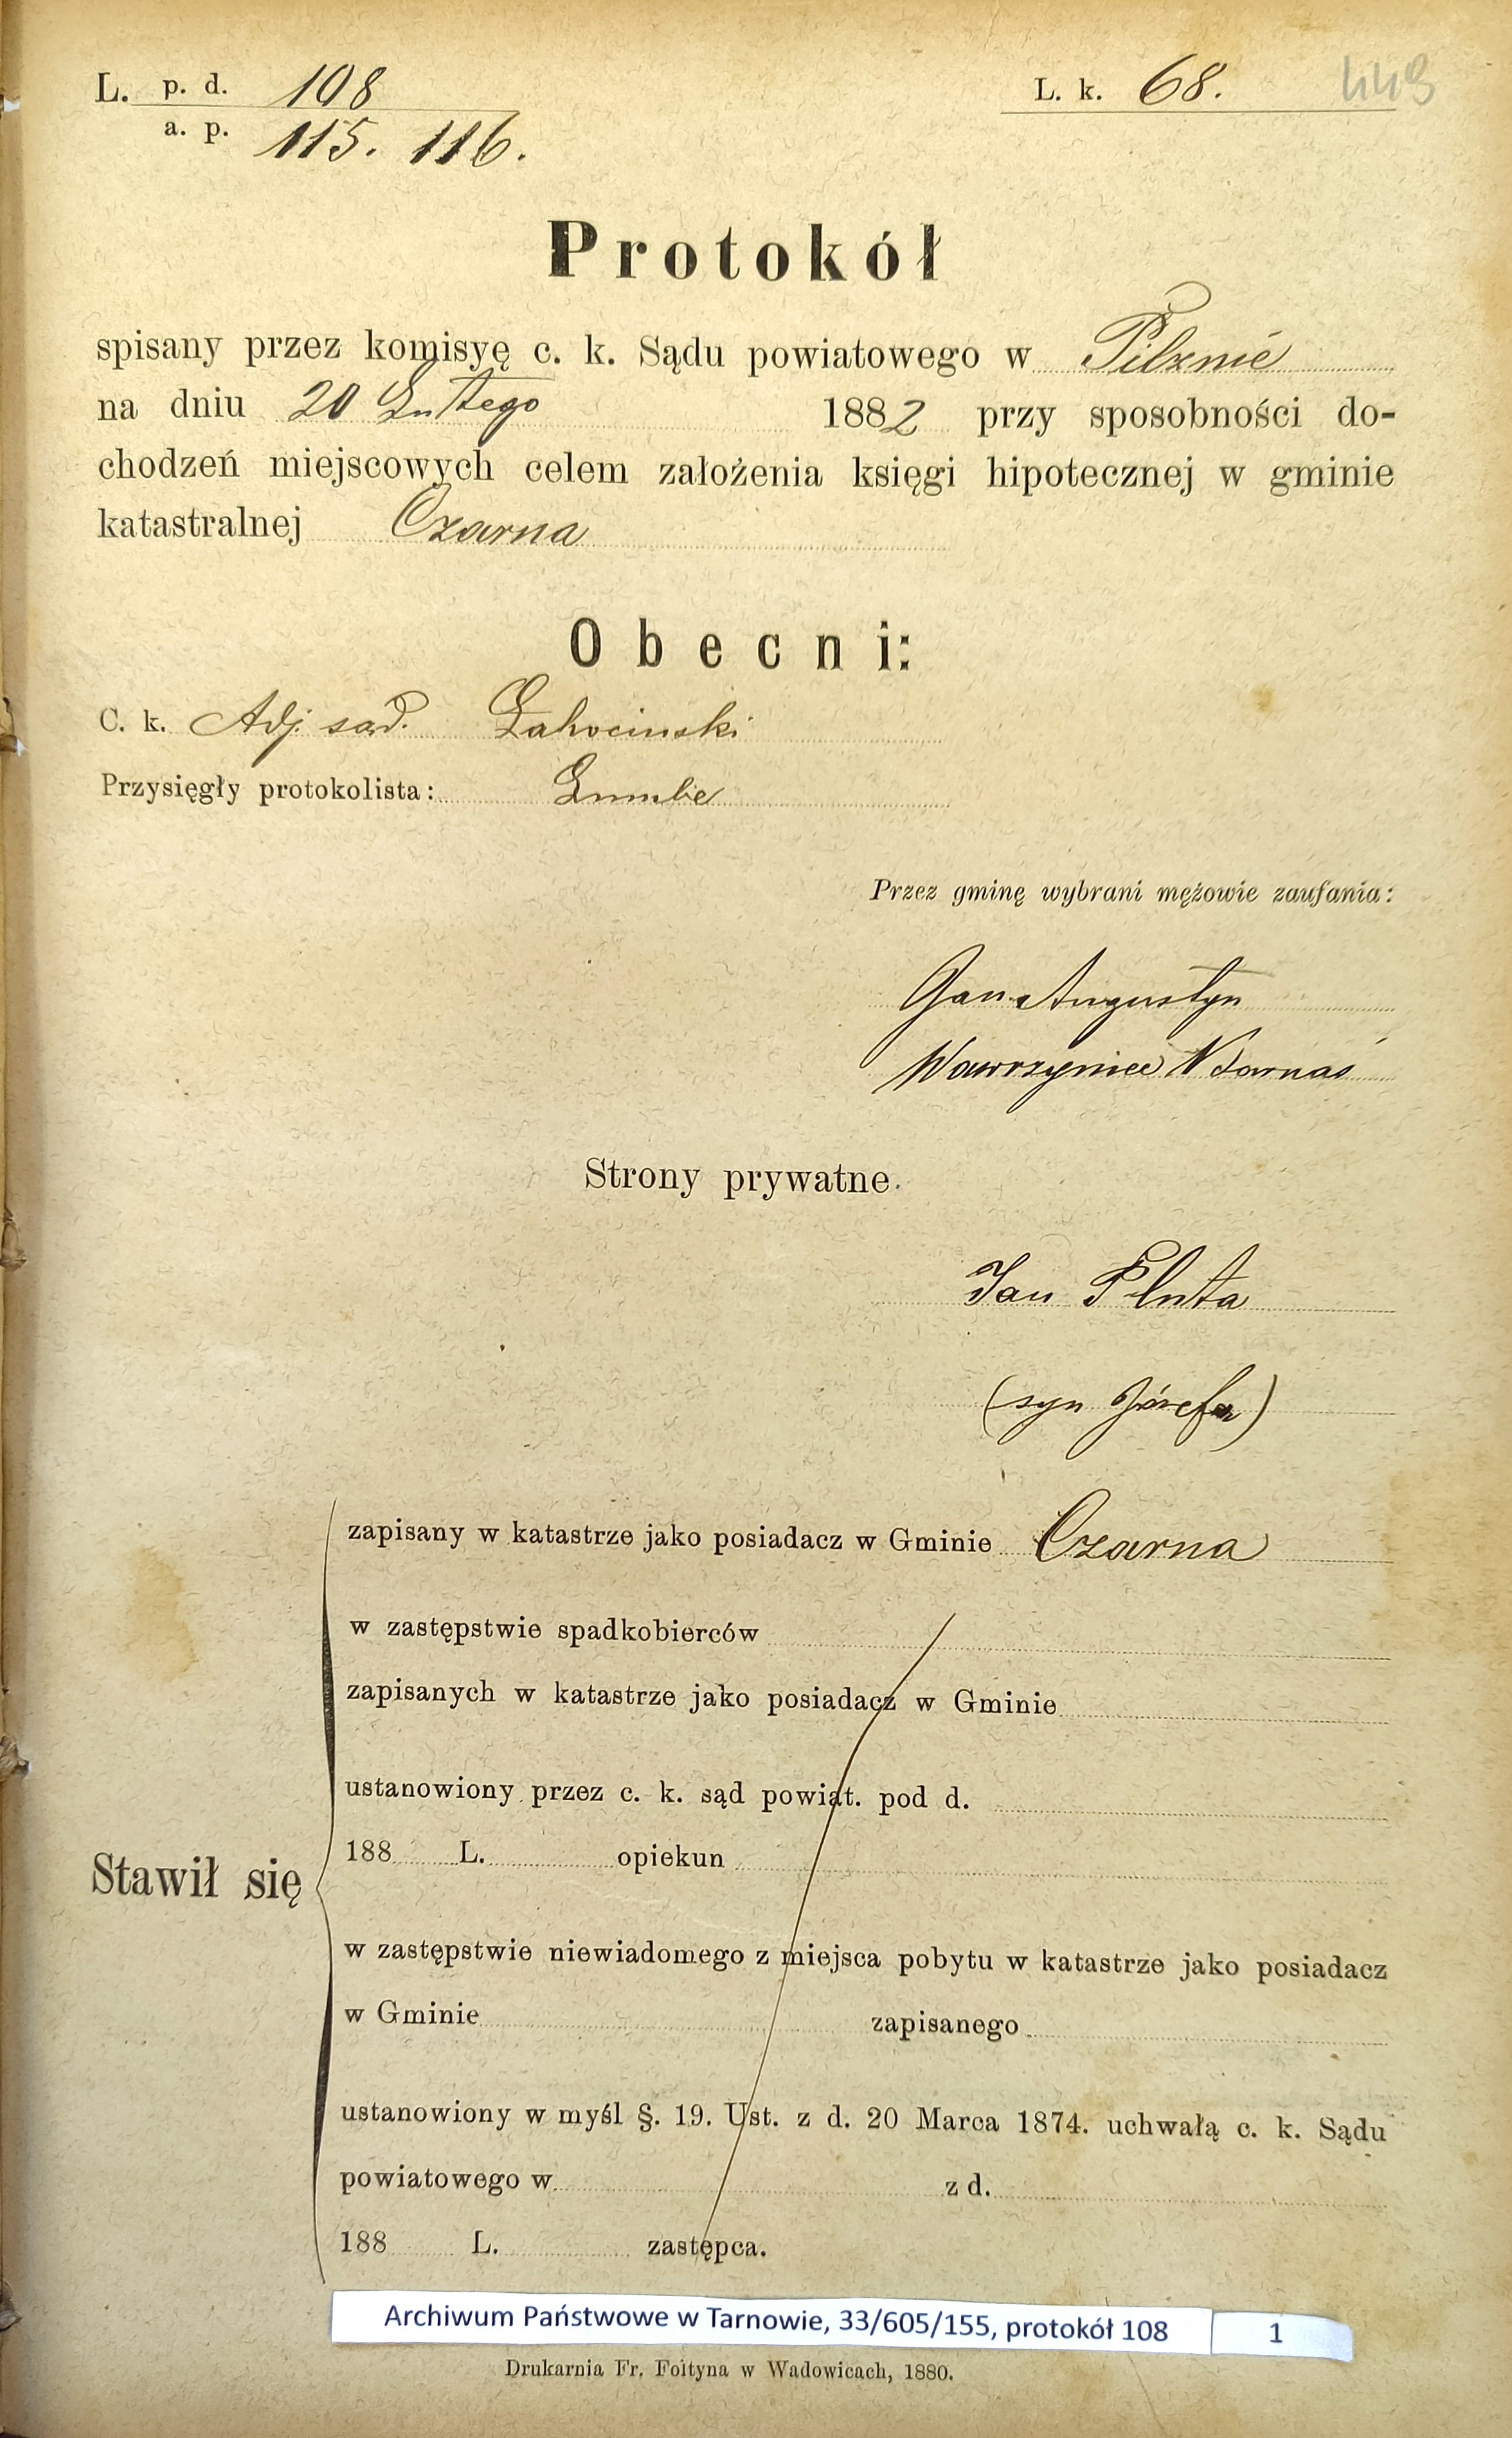 L. p. d. 108
a. p. 115. 116.
L. k. 68. 449
Protokół
spisany przez komisyę c. k. Sądu powiatowego w Pilznie
na dniu 20 Lutego 1882 przy sposobności do-
chodzeń miejscowych celem założenia księgi hipotecznej w gminie
katastralnej Czarna
Obecni:
C. k. Adj. sąd.
Przysięgły protokolista:
Przez gminę wybrani mężowie zaufania:
Jan Augustyn
Wawrzyniec
Strony prywatne.
Jan Pluta
(syn Józefa)
zapisany w katastrze jako posiadacz w Gminie Czarna
w zastępstwie spadkobierców
zapisanych w katastrze jako posiadacz w Gminie
ustanowiony przez c. k. sąd powiat. pod d.
188 L. opiekun
Stawił się
w zastępstwie niewiadomego z miejsca pobytu w katastrze jako posiadacz
w Gminie zapisanego
ustanowiony w myśl §. 19. Ust. z d. 20 Marca 1874. uchwałą c. k. Sądu
powiatowego w z d.
188 L. zastępca.
Archiwum Państwowe w Tarnowie, 33/605/155, protokół 108 1
Drukarnia Fr. Foltyna w Wadowicach, 1880.